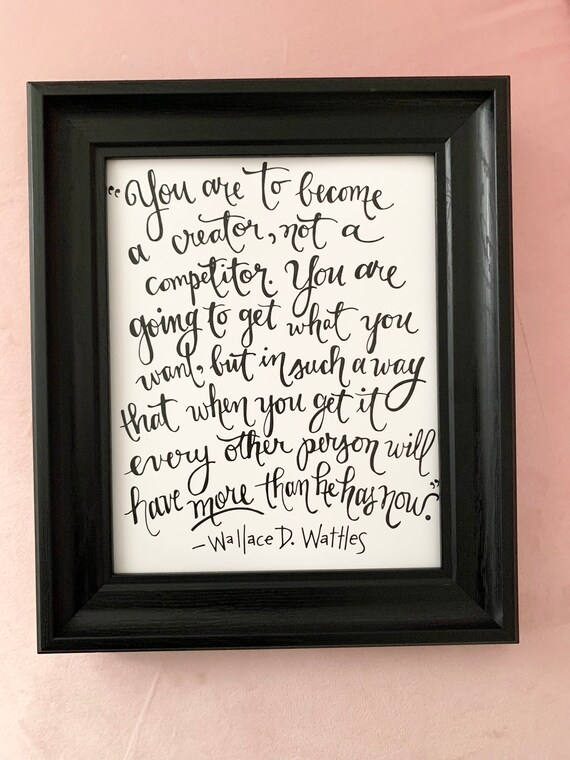 “You are to become
a creator, not a
competitor. You are
going to get what you
want, but in such a way
that when you get it
every other person will
have more than he has now.”
-Wallace D. Wattles